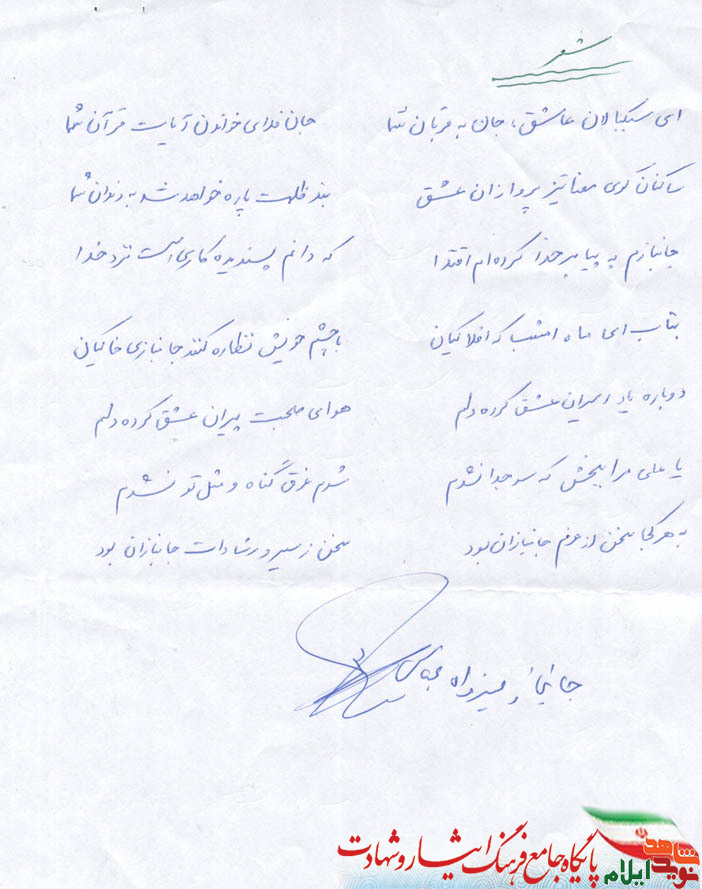 شعر
ای سبکبالان عاشق، جان به قربان شما جان فدای خواندن آیات قرآن شما
ساکنان کوی معنا تیز پروازان عشق بند ظلمت پاره خواهد شد به دندان شما
جانبازم به پیامبر خدا کرده‌ام اقتدا که دانم پسندیده کاری است نزد خدا
بتاب ای ماه امشب که افلاکیان با چشم خویش نظاره کنند جانبازی خاکیان
دوباره یاد اسیران عشق کرده دلم هوای صحبت پیران عشق کرده دلم
یا علی مرا ببخش که سر جدا نشدم شدم غرق گناه و مثل تو نشدم
به هر کجا سخن از عزم جانبازان بود سخن ز سیر و رشادات جانبازان بود
جانباز عباس
پایگاه جامع فرهنگ ایثار و شهادت
نوید شاهد ایلام